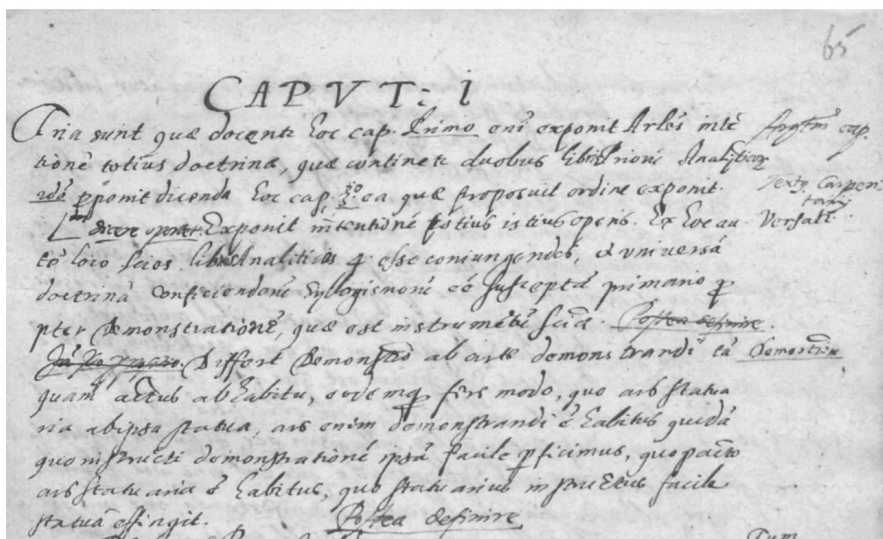 65
CAPVT: I
Tria sunt quæ docenti hoc cap. Primo enĩ exponit Arles intẽ
tionẽ totius doctrinæ, quæ continet duobus Analitic
2do pponit dicenda hoc cap. 3o ea quæ proposuit ordine exponit.
Exponit intentionẽ totius istius operis. Ex hoc au
loco Analiticos esse coniungendos, et vniversã
doctrinã conficiendorũ syllogismorũ eẽ susceptã primario p
pter Demonstrationẽ, quæ est instrumẽtũ sciæ. Postea definire.
Differt Demonstrio ab arte demonstrandi tã
quam actus ab habitu, eodemq fere modo, quo ars statua
ria ab ipsa statua, ars enim demonstrandi ẽ habitus quidã
quo instructi demonstrationẽ ipsã facile pficimus, quo pacto
ars statuaria ẽ habitus, quo statuarius instructus facile
statuã effingit.
Postea definire
Tum
cap.
Carpen
tarij